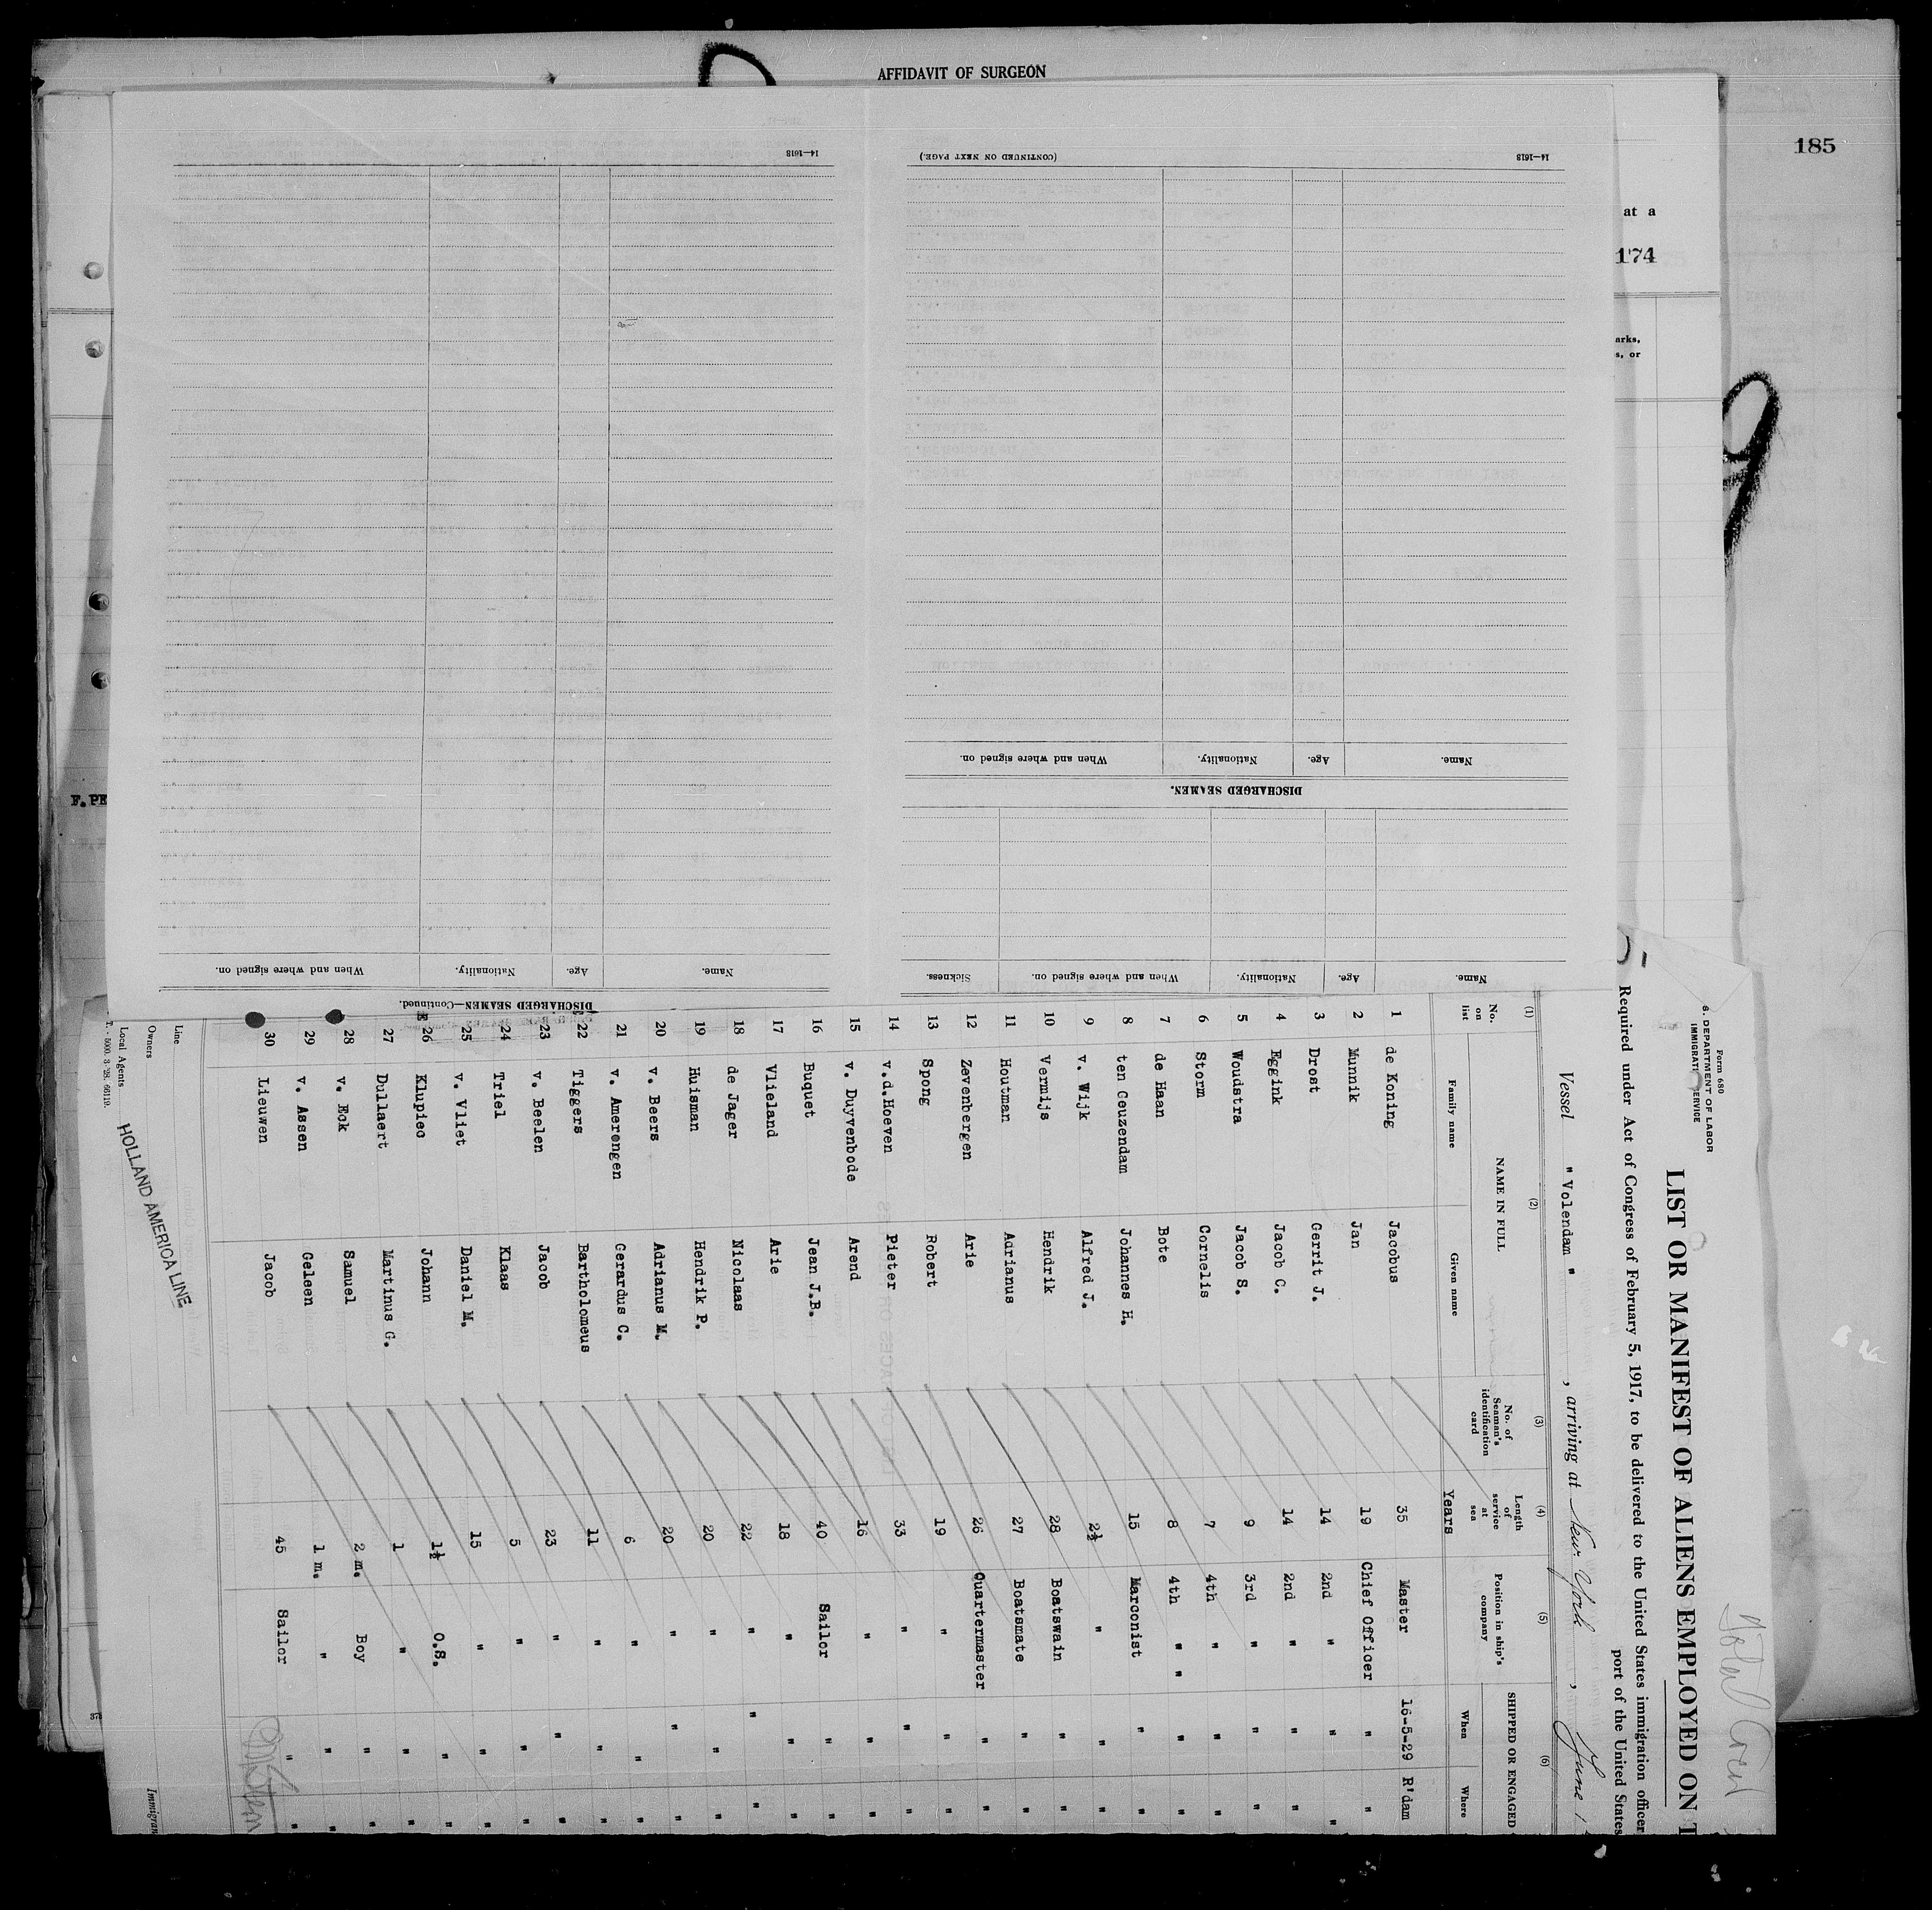 AFFIDAVIT OF SURGEON
185
at a
174
arks,
s, or
F. PE
14—1618
(CONTINUED ON NEXT PAGE.)
14—1618
Name. Age. Nationality. When and where signed on.
DISCHARGED SEAMEN.
Name. Age. Nationality. When and where signed on. Sickness.
Name. Age. Nationality. When and where signed on.
DISCHARGED SEAMEN—Continued.
Form 680
S. DEPARTMENT OF LABOR
IMMIGRATI SERVICE
LIST OR MANIFEST OF ALIENS EMPLOYED ON T
Required under Act of Congress of February 5, 1917, to be delivered to the United States immigration officer
port of the United States
Vessel " Volendam " , arriving at New York , June 1
(1) (2) (3) (4) (5) (6)
No. on list NAME IN FULL No. of Seaman's identification card Length of service at sea Position in ship's company SHIPPED OR ENGAGED
Family name Given name Years When Where
1 de Koning Jacobus 35 Master 16-5-29 R'dam
2 Munnik Jan 19 Chief Officer " "
3 Drost Gerrit J. 14 2nd " " "
4 Eggink Jacob C. 14 2nd " " "
5 Woudstra Jacob S. 9 3rd " " "
6 Storm Cornelis 7 4th " " "
7 de Haan Bote 8 4th " " " "
8 ten Ceuzendam Johannes H. 15 Marconist " "
9 v. Wijk Alfred J. 2½ " " "
10 Vermijs Hendrik 28 Boatswain " "
11 Houtman Adrianus 27 Boatsmate " "
12 Zevenbergen Arie 26 Quartermaster " "
13 Spong Robert 19 " " "
14 v.d.Hoeven Pieter 33 " " "
15 v. Duyvenbode Arend 16 " " "
16 Buquet Jean J.B. 40 Sailor " "
17 Vlieland Arie 18 " " "
18 de Jager Nicolaas 22 " " "
19 Huisman Hendrik P. 20 " " "
20 v. Beers Adrianus M. 20 " " "
21 v. Amerongen Gerardus C. 6 " " "
22 Tiggers Bartholomeus 11 " " "
23 v. Beelen Jacob 23 " " "
24 Triel Klaas 5 " " "
25 v. Vliet Daniel M. 15 " " "
26 Klupiec Johann 1½ O.S. " "
27 Dullaert Martinus G. 1 " " "
28 v. Eck Samuel 2 m. Boy " "
29 v. Assen Geleen 1 m. " " "
30 Lieuwen Jacob 45 Sailor " "
Line
Owners
Local Agents
HOLLAND AMERICA LINE
Immigran